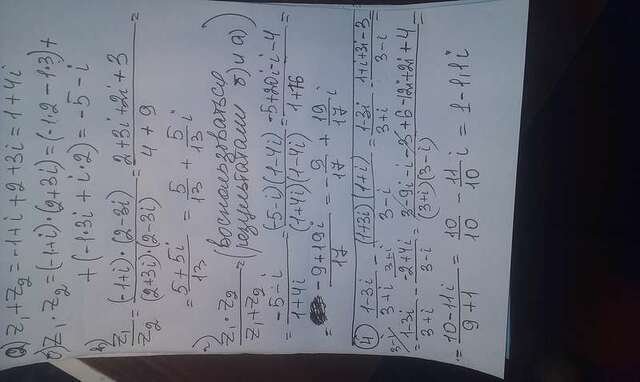 а) z₁+z₂ = -1+i+2+3i = 1+4i
б) z₁·z₂ = (-1+i)·(2+3i) = (-1·2-1·3)+
+(-1·3i+i·2) = -5-i
в) z₁/z₂ = (-1+i)·(2-3i)/(2+3i)·(2-3i) = 2+3i+2i+3/4+9 =
= 5+5i/13 = 5/13 + 5/13 i
г) z₁·z₂/z₁+z₂ = (воспользоваться результатами б) и а))
= -5-i/1+4i = (-5-i)(1-4i)/(1+4i)(1-4i) = -5+20i-i-4/1+16 =
= -9+19i/17 = -9/17 + 19/17 i
④ 1-3i/3+i - (1+3i)(1+i)/3-i = 1-3i/3+i - 1+i+3i-3/3-i =
= 1-3i/3+i - -2+4i/3-i = 3-9i-i-3+6-12i+2i+4/(3+i)(3-i) =
= 10-11i/9+1 = 10/10 - 11/10 i = 1-1,1i